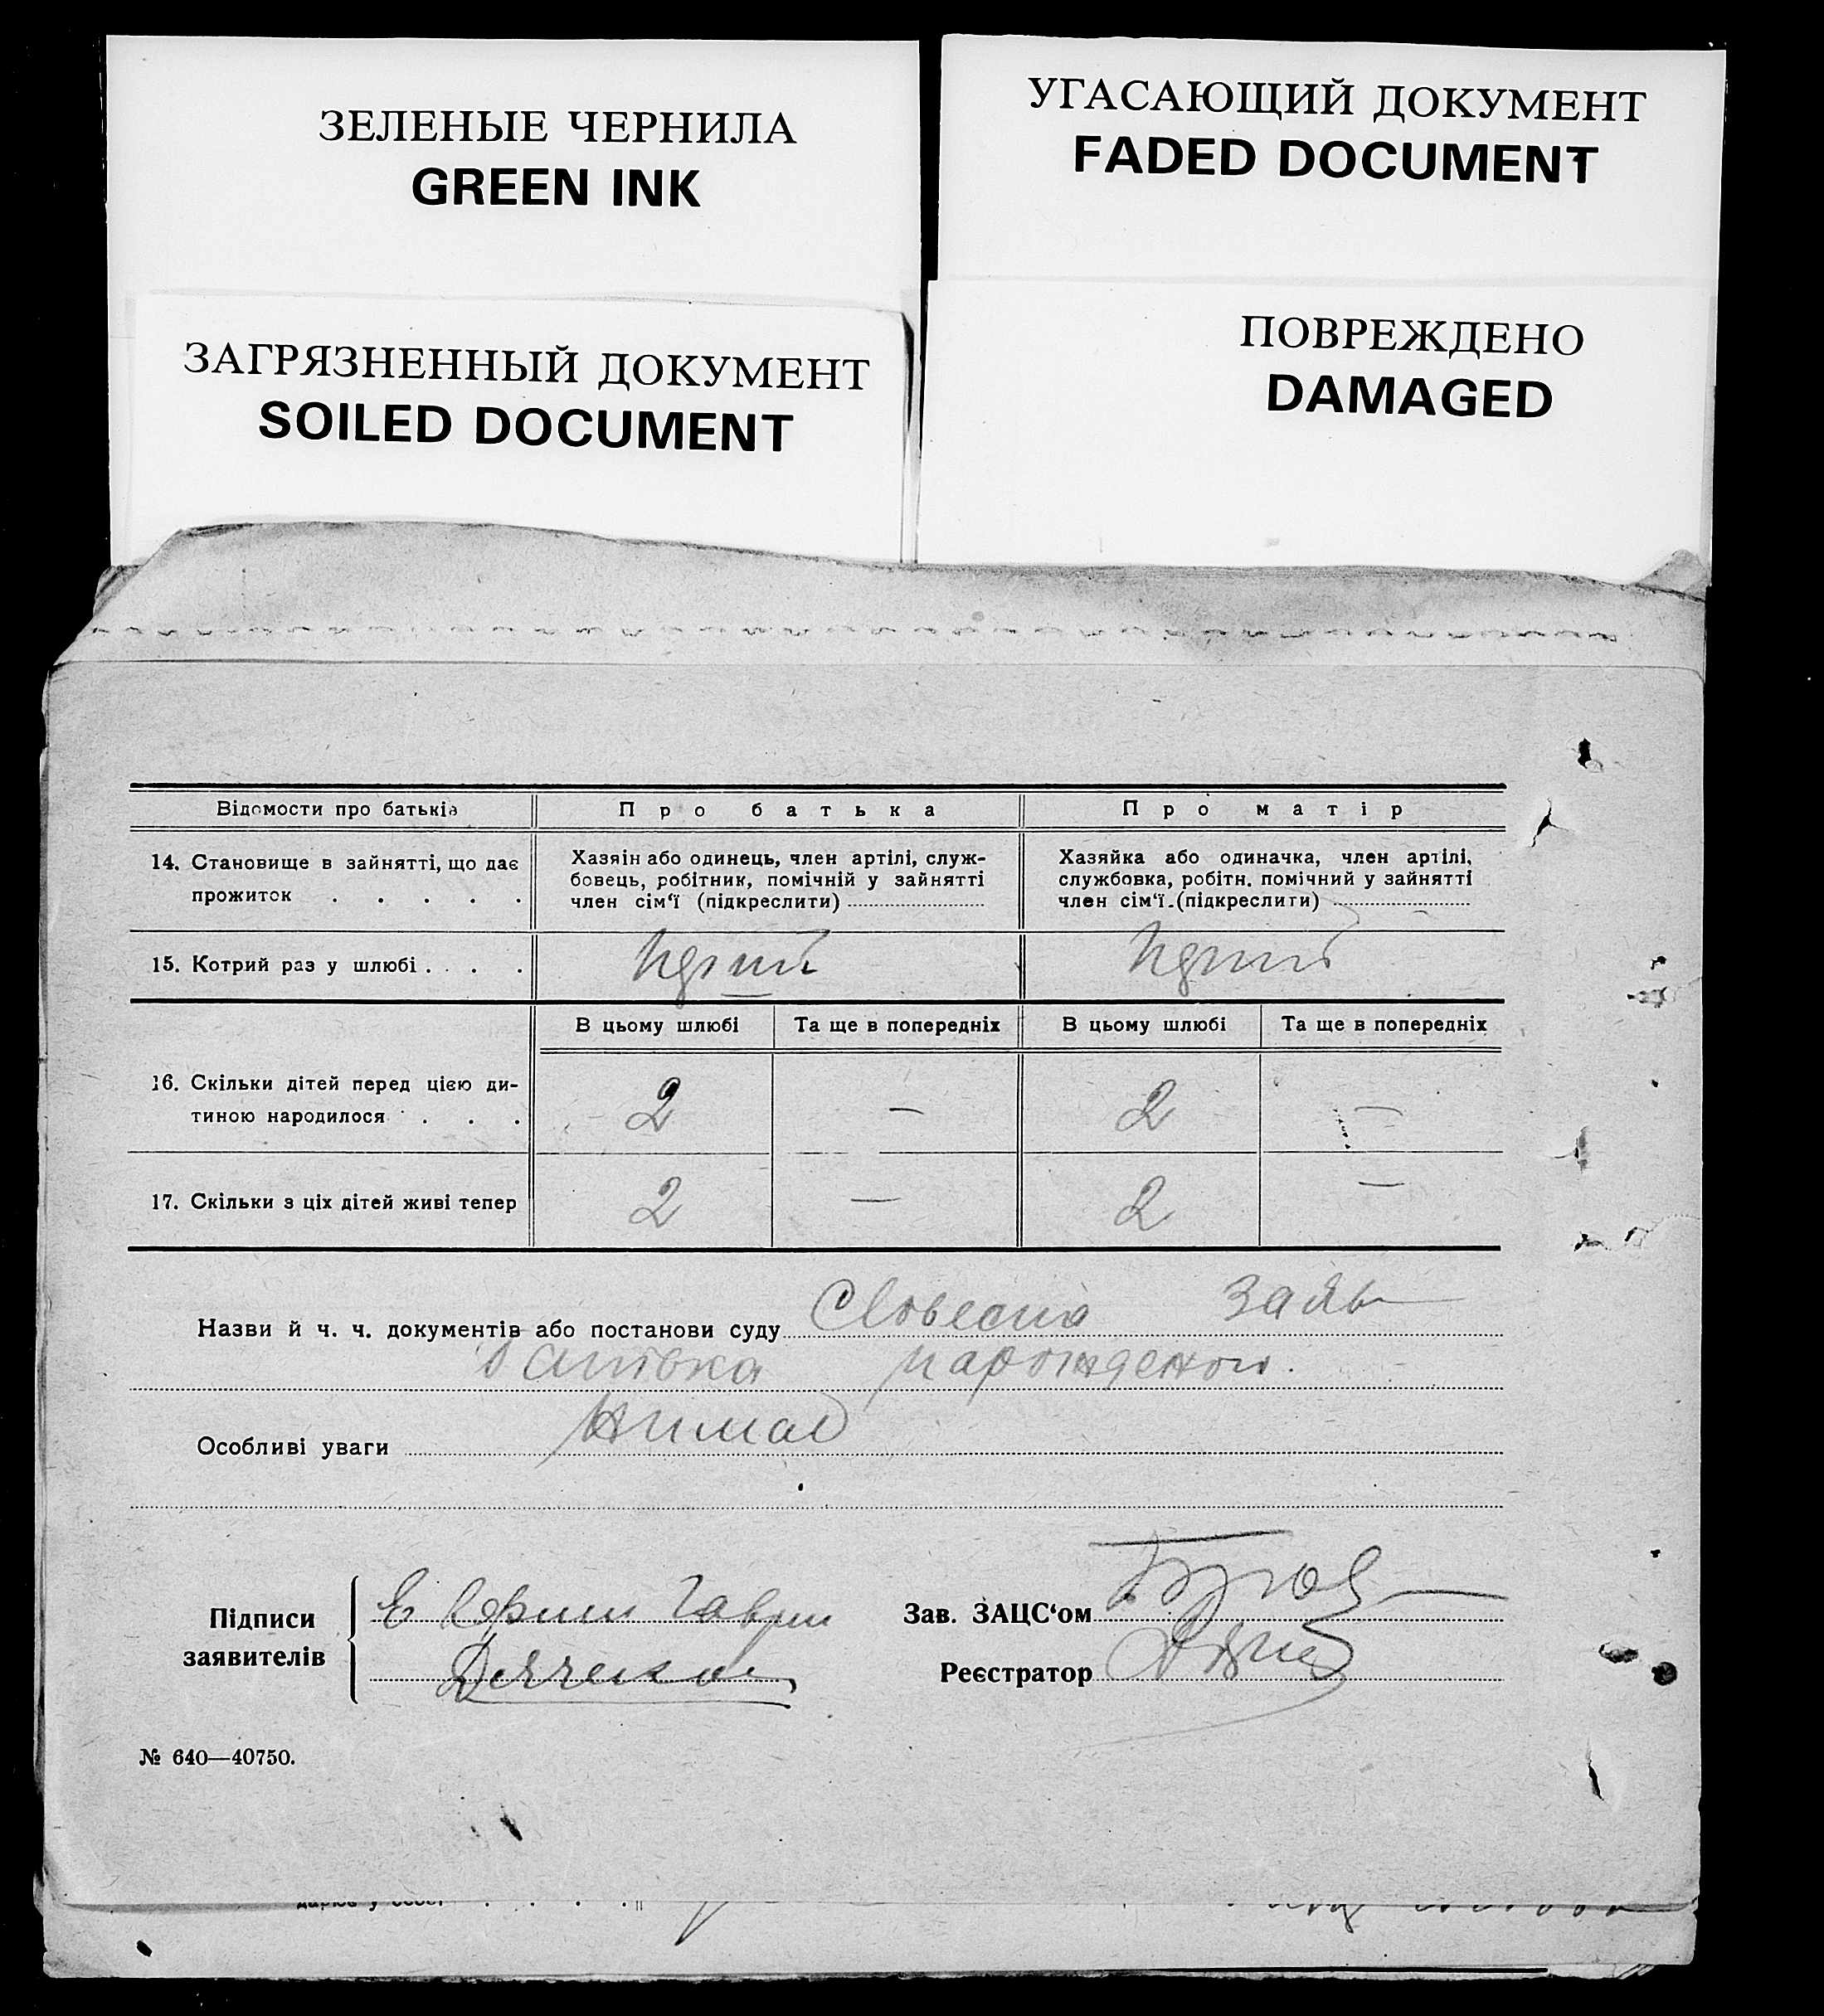 ЗЕЛЕНЫЕ ЧЕРНИЛА
GREEN INK
УГАСАЮЩИЙ ДОКУМЕНТ
FADED DOCUMENT
ЗАГРЯЗНЕННЫЙ ДОКУМЕНТ
SOILED DOCUMENT
ПОВРЕЖДЕНО
DAMAGED
Відомости про батьків
Про батька
Про матір
14. Становище в зайнятті, що дає
прожиток . . . . .
Хазяін або одинець, член артілі, служ-
бовець, робітник, помічній у зайнятті
член сім'ї (підкреслити)
Хазяйка або одиначка, член артілі,
службовка, робітн. помічний у зайнятті
член сім'ї (підкреслити)
15. Котрий раз у шлюбі . . . .
В цьому шлюбі
Та ще в попередніх
В цьому шлюбі
Та ще в попередніх
16. Скільки дітей перед цією ди-
тиною народилося . . .
2 — 2 —
17. Скільки з ціх дітей живі тепер
2 — 2 —
Назви й ч. ч. документів або постанови суду Словесна заяв
Особливі уваги
Підписи
заявителів
Зав. ЗАЦС'ом
Реєстратор
№ 640—40750.